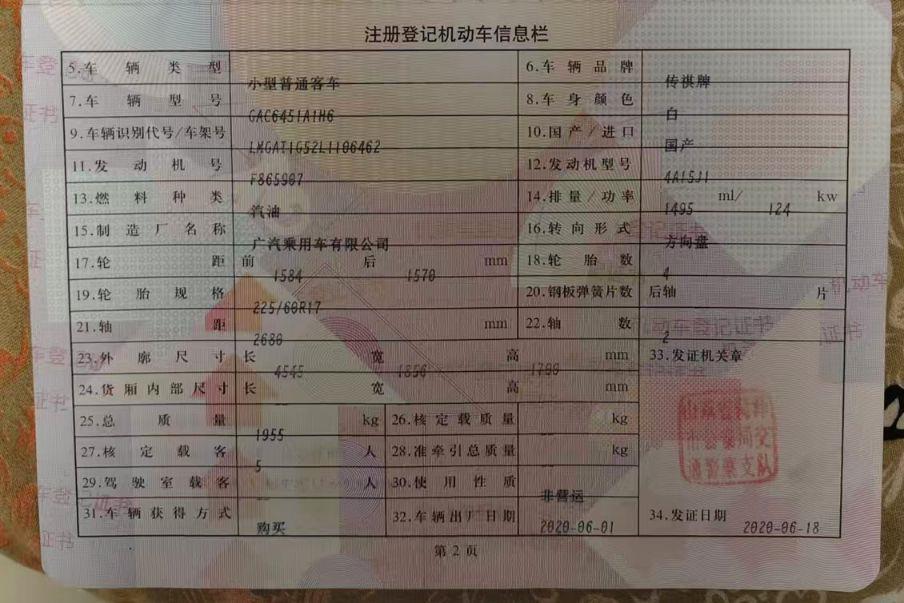 注册登记机动车信息栏
5.车辆类型 小型普通客车 6.车辆品牌 传祺牌
7.车辆型号 GAC6451A1H6 8.车身颜色 白
9.车辆识别代号/车架号 LMGAT1G52L1106462 10.国产/进口 国产
11.发动机号 F865907 12.发动机型号 4A15J1
13.燃料种类 汽油 14.排量/功率 1495 ml/ 124 kw
15.制造厂名称 广汽乘用车有限公司 16.转向形式 方向盘
17.轮距 前 1584 后 1570 mm 18.轮胎数 4
19.轮胎规格 225/60R17 20.钢板弹簧片数 后轴 片
21.轴距 2680 mm 22.轴数 2
23.外廓尺寸 长 4545 宽 1856 高 1700 mm 33.发证机关章
24.货厢内部尺寸 长 宽 高 mm
25.总质量 1955 kg 26.核定载质量 -- kg
27.核定载客 5 人 28.准牵引总质量 -- kg
29.驾驶室载客 -- 人 30.使用性质 非营运
31.车辆获得方式 购买 32.车辆出厂日期 2020-06-01 34.发证日期 2020-06-18
第2页